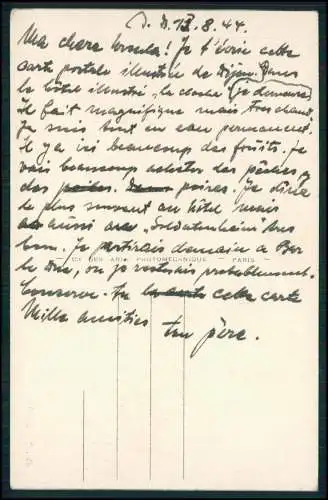 D. D. 13.8.44.
Ma chère Ursula! Je t'écris cette
carte postale illustrée de Dijon. Dans
le hôtel illustré, la cloche (je demeure)
Il fait magnifique mais très chaud.
Je suis tout en eau permanent.
Il y a ici beaucoup des fruits. je
vais beaucoup acheter des pêches
des poires. Je dîne
le plus souvent au hôtel mais
aussi au "Soldatenheim" très
bon. Je partirais demain a Bar
le Duc, ou je resterais probablement.
DES ARTS PHOTOMECHNIQUE — PARIS —
Conserve cette carte
Mille amitiés
ton père.